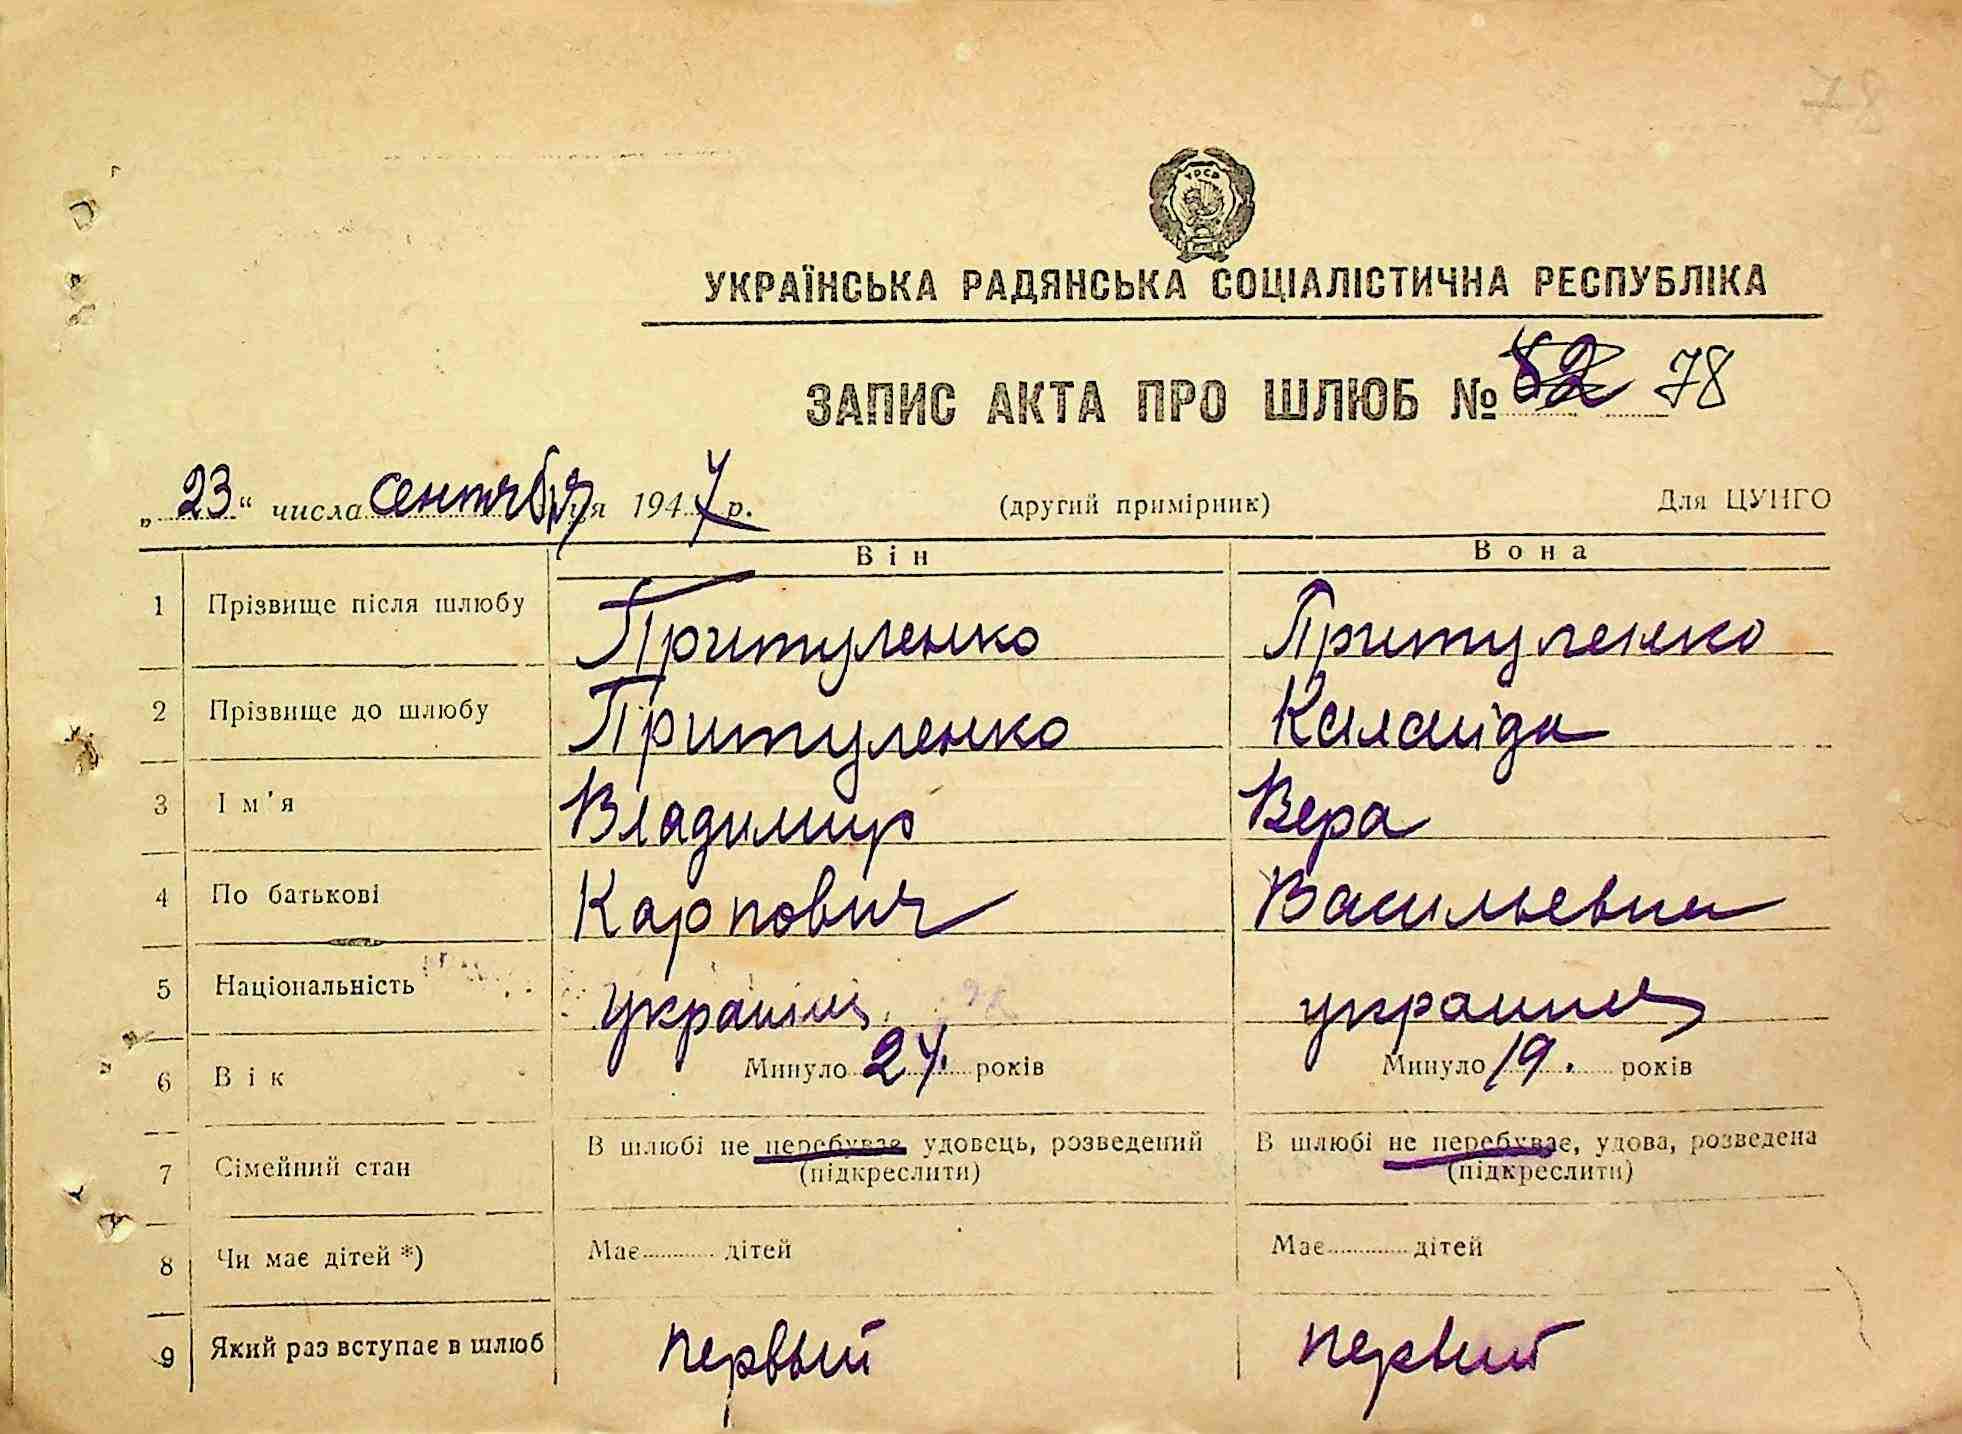 УРСР
УКРАЇНСЬКА РАДЯНСЬКА СОЦІАЛІСТИЧНА РЕСПУБЛІКА
ЗАПИС АКТА ПРО ШЛЮБ № 52 78
„23“ числа сентября ця 1947 р. (другий примірник) Для ЦУНГО
Він Вона
1 Прізвище після шлюбу Притуленко Притуленко
2 Прізвище до шлюбу Притуленко Калайда
3 Ім'я Владимир Вера
4 По батькові Карпович Васильевна
5 Національність украинец украинец
6 Вік Минуло 24. років Минуло 19. років
7 Сімейний стан В шлюбі не перебуває, удовець, розведений В шлюбі не перебуває, удова, розведена
(підкреслити) (підкреслити)
8 Чи має дітей *) Має дітей Має дітей
9 Який раз вступає в шлюб первый первый